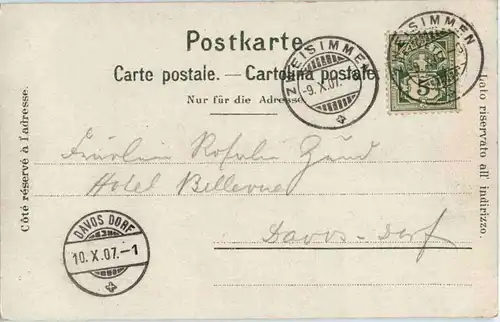 Postkarte
Carte postale. — Cartolina postale
Nur für die Adresse
Côté réservé à l'adresse.
Lato riservato all' indirizzo.
ZWEISIMMEN
-9.X.07.
ZWEISIMMEN
5
Fräulein Rosalie Zünd
Hotel Bellevue
Davos-Dorf
DAVOS DORF
10.X.07.-1